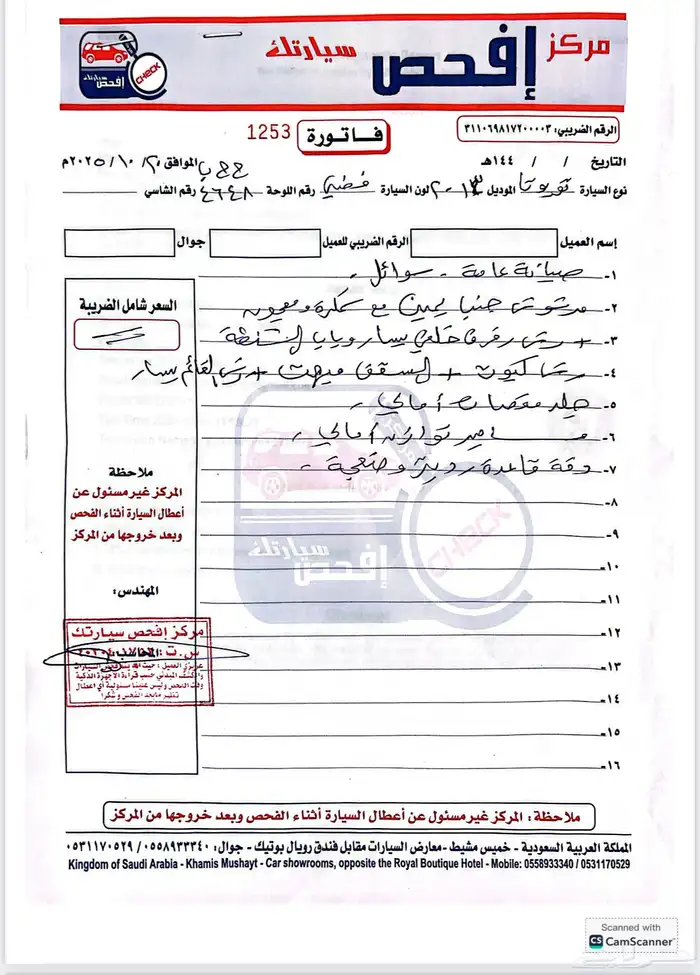 مركز إفحص سيارتك
إفحص سيارتك CHECK
الرقم الضريبي: ٣١١٠٦٩٨١٧٢٠٠٠٠٣
فاتورة 1253
التاريخ / / ١٤٤هـ الموافق ٢٠ / ١٠ / ٢٠٢٥م
نوع السيارة تويوتا الموديل ٢٠١٣ لون السيارة فضي رقم اللوحة ٤٦٤٨ رقم الشاسي
إسم العميل الرقم الضريبي للعميل جوال
السعر شامل الضريبة
١- صيانة عامة - سوائل -
٢- مرشوش جنبا يمين مع
٣- + رش رفرف خلفي يسار وباب الشنطة
٤- رش كبوت + السقف + رش القائم يسار
٥- جلد مقصات أمامي -
٦- أمامي -
٧- دقة قاعدة
٨-
٩-
١٠-
١١-
١٢-
١٣-
١٤-
١٥-
١٦-
ملاحظة
المركز غير مسئول عن
أعطال السيارة أثناء الفحص
وبعد خروجها من المركز
المهندس:
المحاسب:
مركز إفحص سيارتك
إفحص سيارتك CHECK
ملاحظة : المركز غير مسئول عن أعطال السيارة أثناء الفحص وبعد خروجها من المركز
المملكة العربية السعودية - خميس مشيط - معارض السيارات مقابل فندق رويال بوتيك - جوال: ٠٥٥٨٩٣٣٣٤٠ / ٠٥٣١١٧٠٥٢٩
Kingdom of Saudi Arabia - Khamis Mushayt - Car showrooms, opposite the Royal Boutique Hotel - Mobile: 0558933340 / 0531170529
Scanned with
CS CamScanner